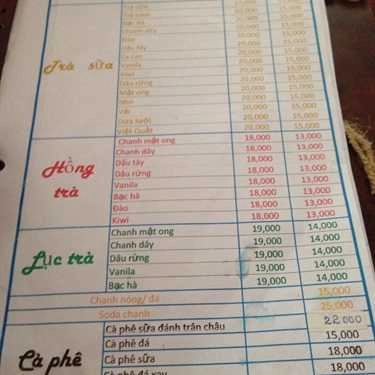 Trà sữa
Bạc hà 20,000 15,000
Chanh dây 20,000 15,000
Đào 20,000 15,000
Dâu tây 20,000 15,000
Ca cao 20,000 15,000
Vanila 20,000 15,000
Kiwi 20,000 15,000
Dâu rừng 20,000 15,000
Mật ong 20,000 15,000
Nho 20,000 15,000
Vải 20,000 15,000
Dưa lưới 20,000 15,000
Việt Quất 20,000 15,000
Hồng trà
Chanh mật ong 18,000 13,000
Chanh dây 18,000 13,000
Dâu tây 18,000 13,000
Dâu rừng 18,000 13,000
Vanila 18,000 13,000
Bạc hà 18,000 13,000
Đào 18,000 13,000
Kiwi 18,000 13,000
Lục trà
Chanh mật ong 19,000 14,000
Chanh dây 19,000 14,000
Dâu rừng 19,000 14,000
Vanila 19,000 14,000
Bạc hà 19,000 14,000
Chanh nóng/ đá 15,000
Soda chanh 25,000
Cà phê
Cà phê sữa đánh trân châu 22000
Cà phê đá 15,000
Cà phê sữa 18,000
Cà phê đá xay 18,000